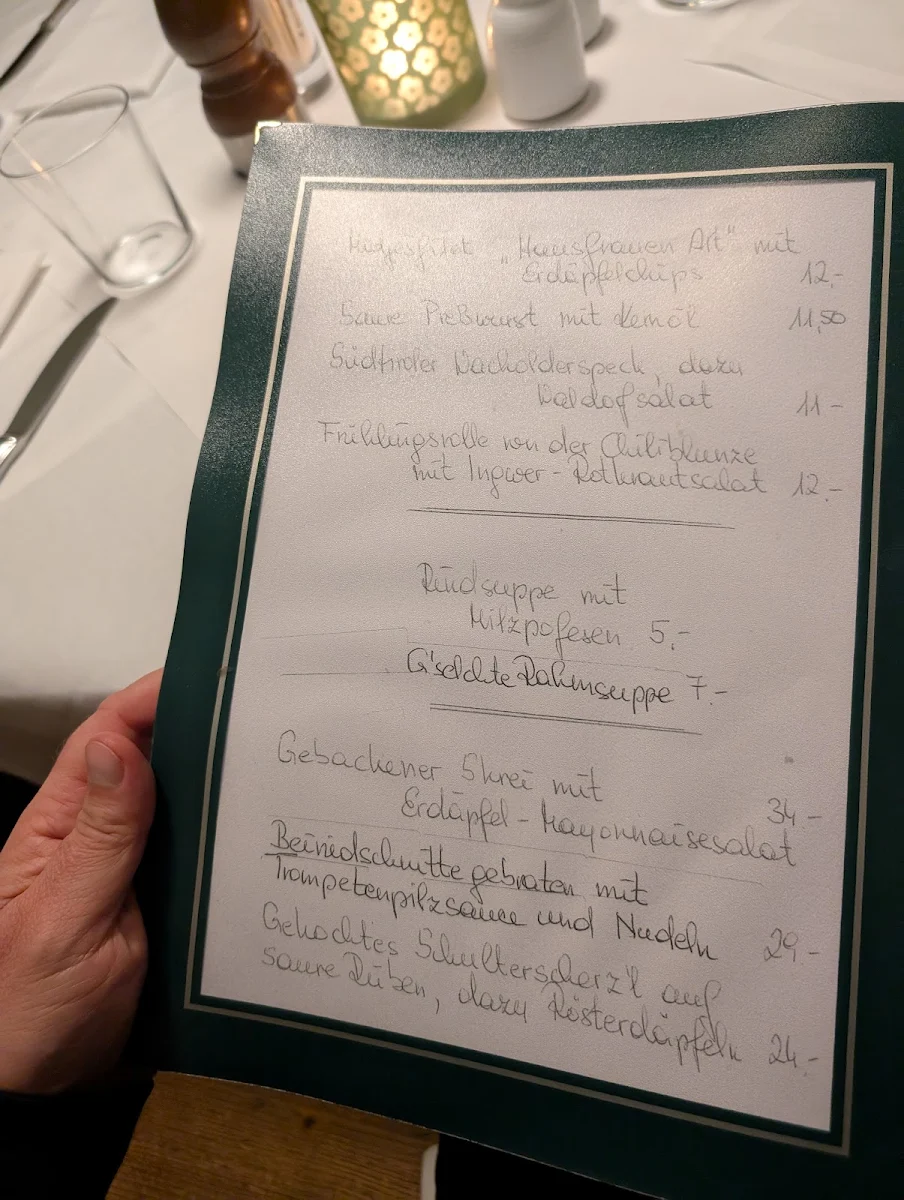 „Hausfrauen Art“ mit
Erdäpfelchips 12,-
Saure Preßwurst mit Kernöl 11,50
Südtiroler Wacholderspeck, dazu
Waldorfsalat 11-
Frühlingsrolle von der Chiliblunze
mit Ingwer-Rotkrautsalat 12.-
Rindsuppe mit
Milzpofesen 5.-
G'selchte Rahmsuppe 7-
Gebackener Skrei mit
Erdäpfel-Mayonnaisesalat 34-
Beiriedschnitte gebraten mit
Trompetenpilzsauce und Nudeln 29-
Gekochtes Schulterscherz'l auf
saure Rüben, dazu Rösterdäpfeln 24.-